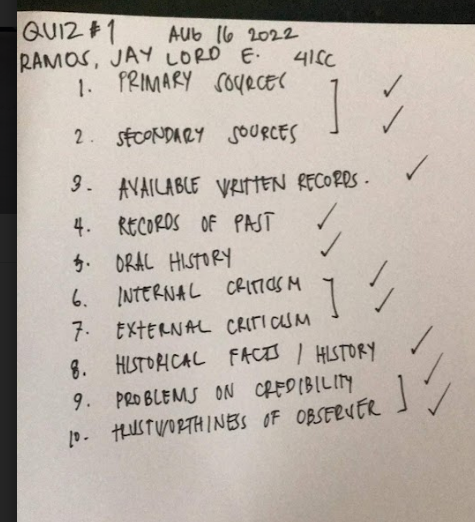 QUIZ #1 AUG 16 2022
RAMOS, JAY LORD E. 41SC
1. PRIMARY SOURCES
2. SECONDARY SOURCES
3. AVAILABLE WRITTEN RECORDS.
4. RECORDS OF PAST
5. ORAL HISTORY
6. INTERNAL CRITICISM
7. EXTERNAL CRITICISM
8. HISTORICAL FACTS / HISTORY
9. PROBLEMS ON CREDIBILITY
10. TRUSTWORTHINESS OF OBSERVER